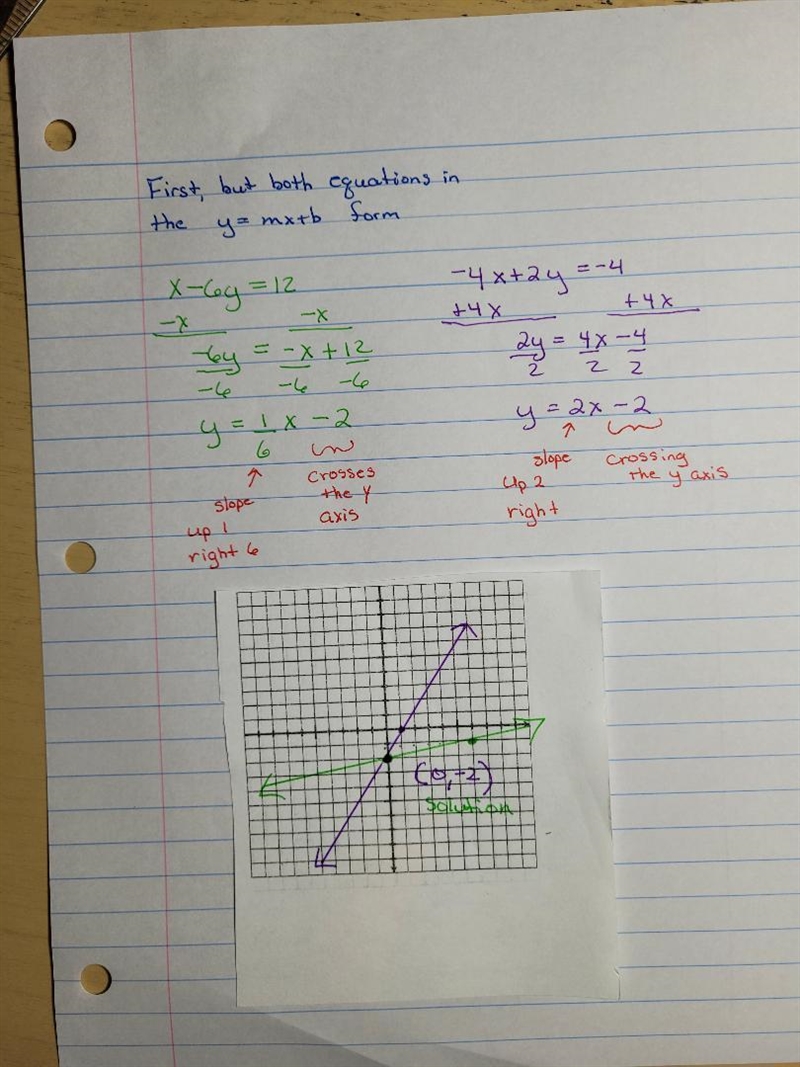 First, but both equations in
the y = mx+b form
x - 6y = 12
-x -x
-6y = -x + 12
-6 -6 -6
y = 1/6 x - 2
slope
up 1
right 6
crosses
the y
axis
-4x + 2y = -4
+4x +4x
2y = 4x - 4
2 2 2
y = 2x - 2
slope
up 2
right
crossing
the y axis
(0, -2)
Solution